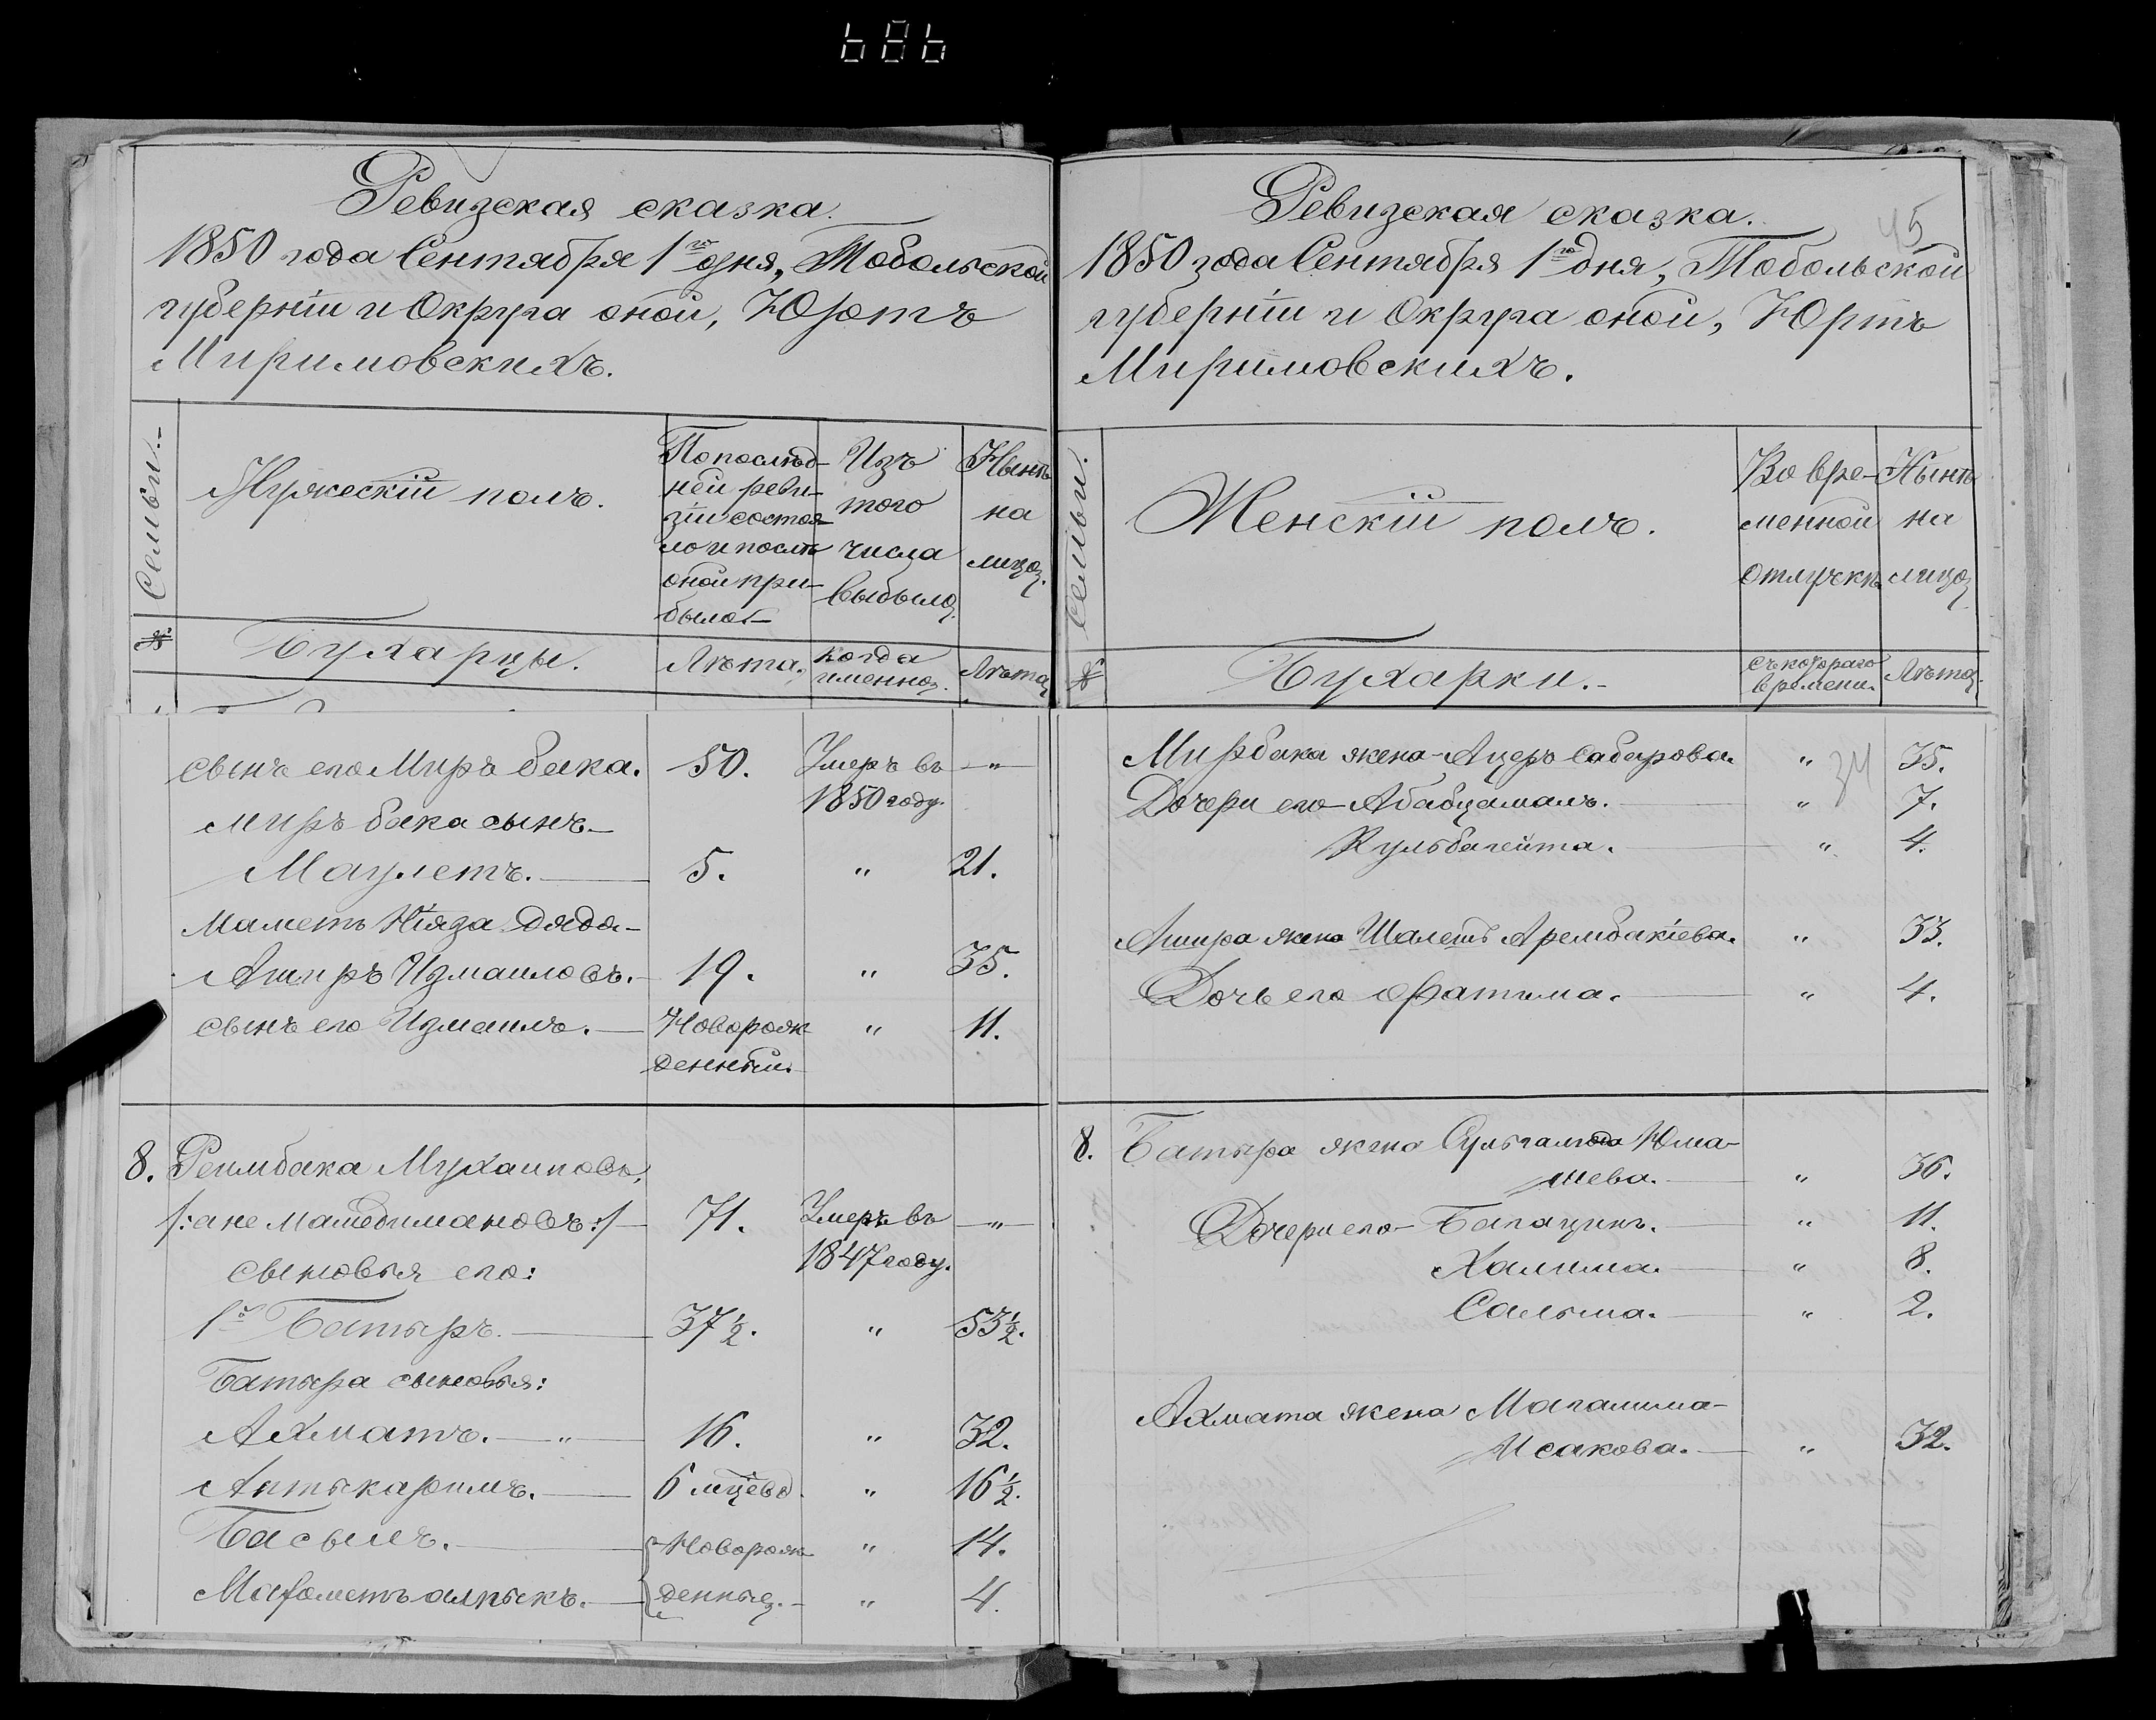 686
Ревизская сказка.
1850 года Сентября 1го дня, Тобольской
губерніи и Округа оной, Юртъ
Миримовскихъ.
Семьи.
Мужескій полъ.
По послѣд-
ней реви-
зіи состоя-
ло и послѣ
оной при-
было.
Изъ
того
числа
выбыло.
Нынѣ
на
лицо.
№
Бухарцы.
Лѣта.
Когда
именно.
Лѣта.
сынъ его Миръ бака. 50. Умеръ въ „
1850 году.
Миръ бака сынъ
Маулетъ. 5. „ 21.
Маметъ НІяза дядя
Аширъ Измаиловъ. 19. „ 35.
сынъ его Измаилъ. Новорож- „ 11.
денный.
8. Реимбака Мухаиповъ,
/: а не Машедимановъ :/ 71. Умеръ въ „
1847 году.
сыновья его:
1й Батыръ. 37½. „ 53½.
Батыра сыновья:
Ахматъ. „ 16. „ 32.
Аптыкаримъ. 6 мцевъ. „ 16½.
Басыръ. Новорож- „ 14.
Маҳометъ алпыкъ. денные. „ 4.
Ревизская сказка.
45
1850 года Сентября 1го дня, Тобольской
губерніи и Округа оной, Юртъ
Миримовскихъ.
Семьи.
Женскій полъ.
Во вре-
менной
отлучкѣ
Нынѣ
на
лицо
№
Бухарки.
съ котораго
времени.
Лѣта.
Мирбака жена Ацеръ Сабирова. „ 34 35.
Дочери его Абабцамалъ. „ 7.
Кульбагейта. „ 4.
Ашира жена Шалетъ Арембакіева. „ 33.
Дочь его Фатима. „ 4.
8. Батыра жена Юма-
шева. „ 36.
Дочери его Багацинъ. „ 11.
Халима. „ 8.
Салыма. „ 2.
Ахмата жена Магалима
Исакова. „ 32.